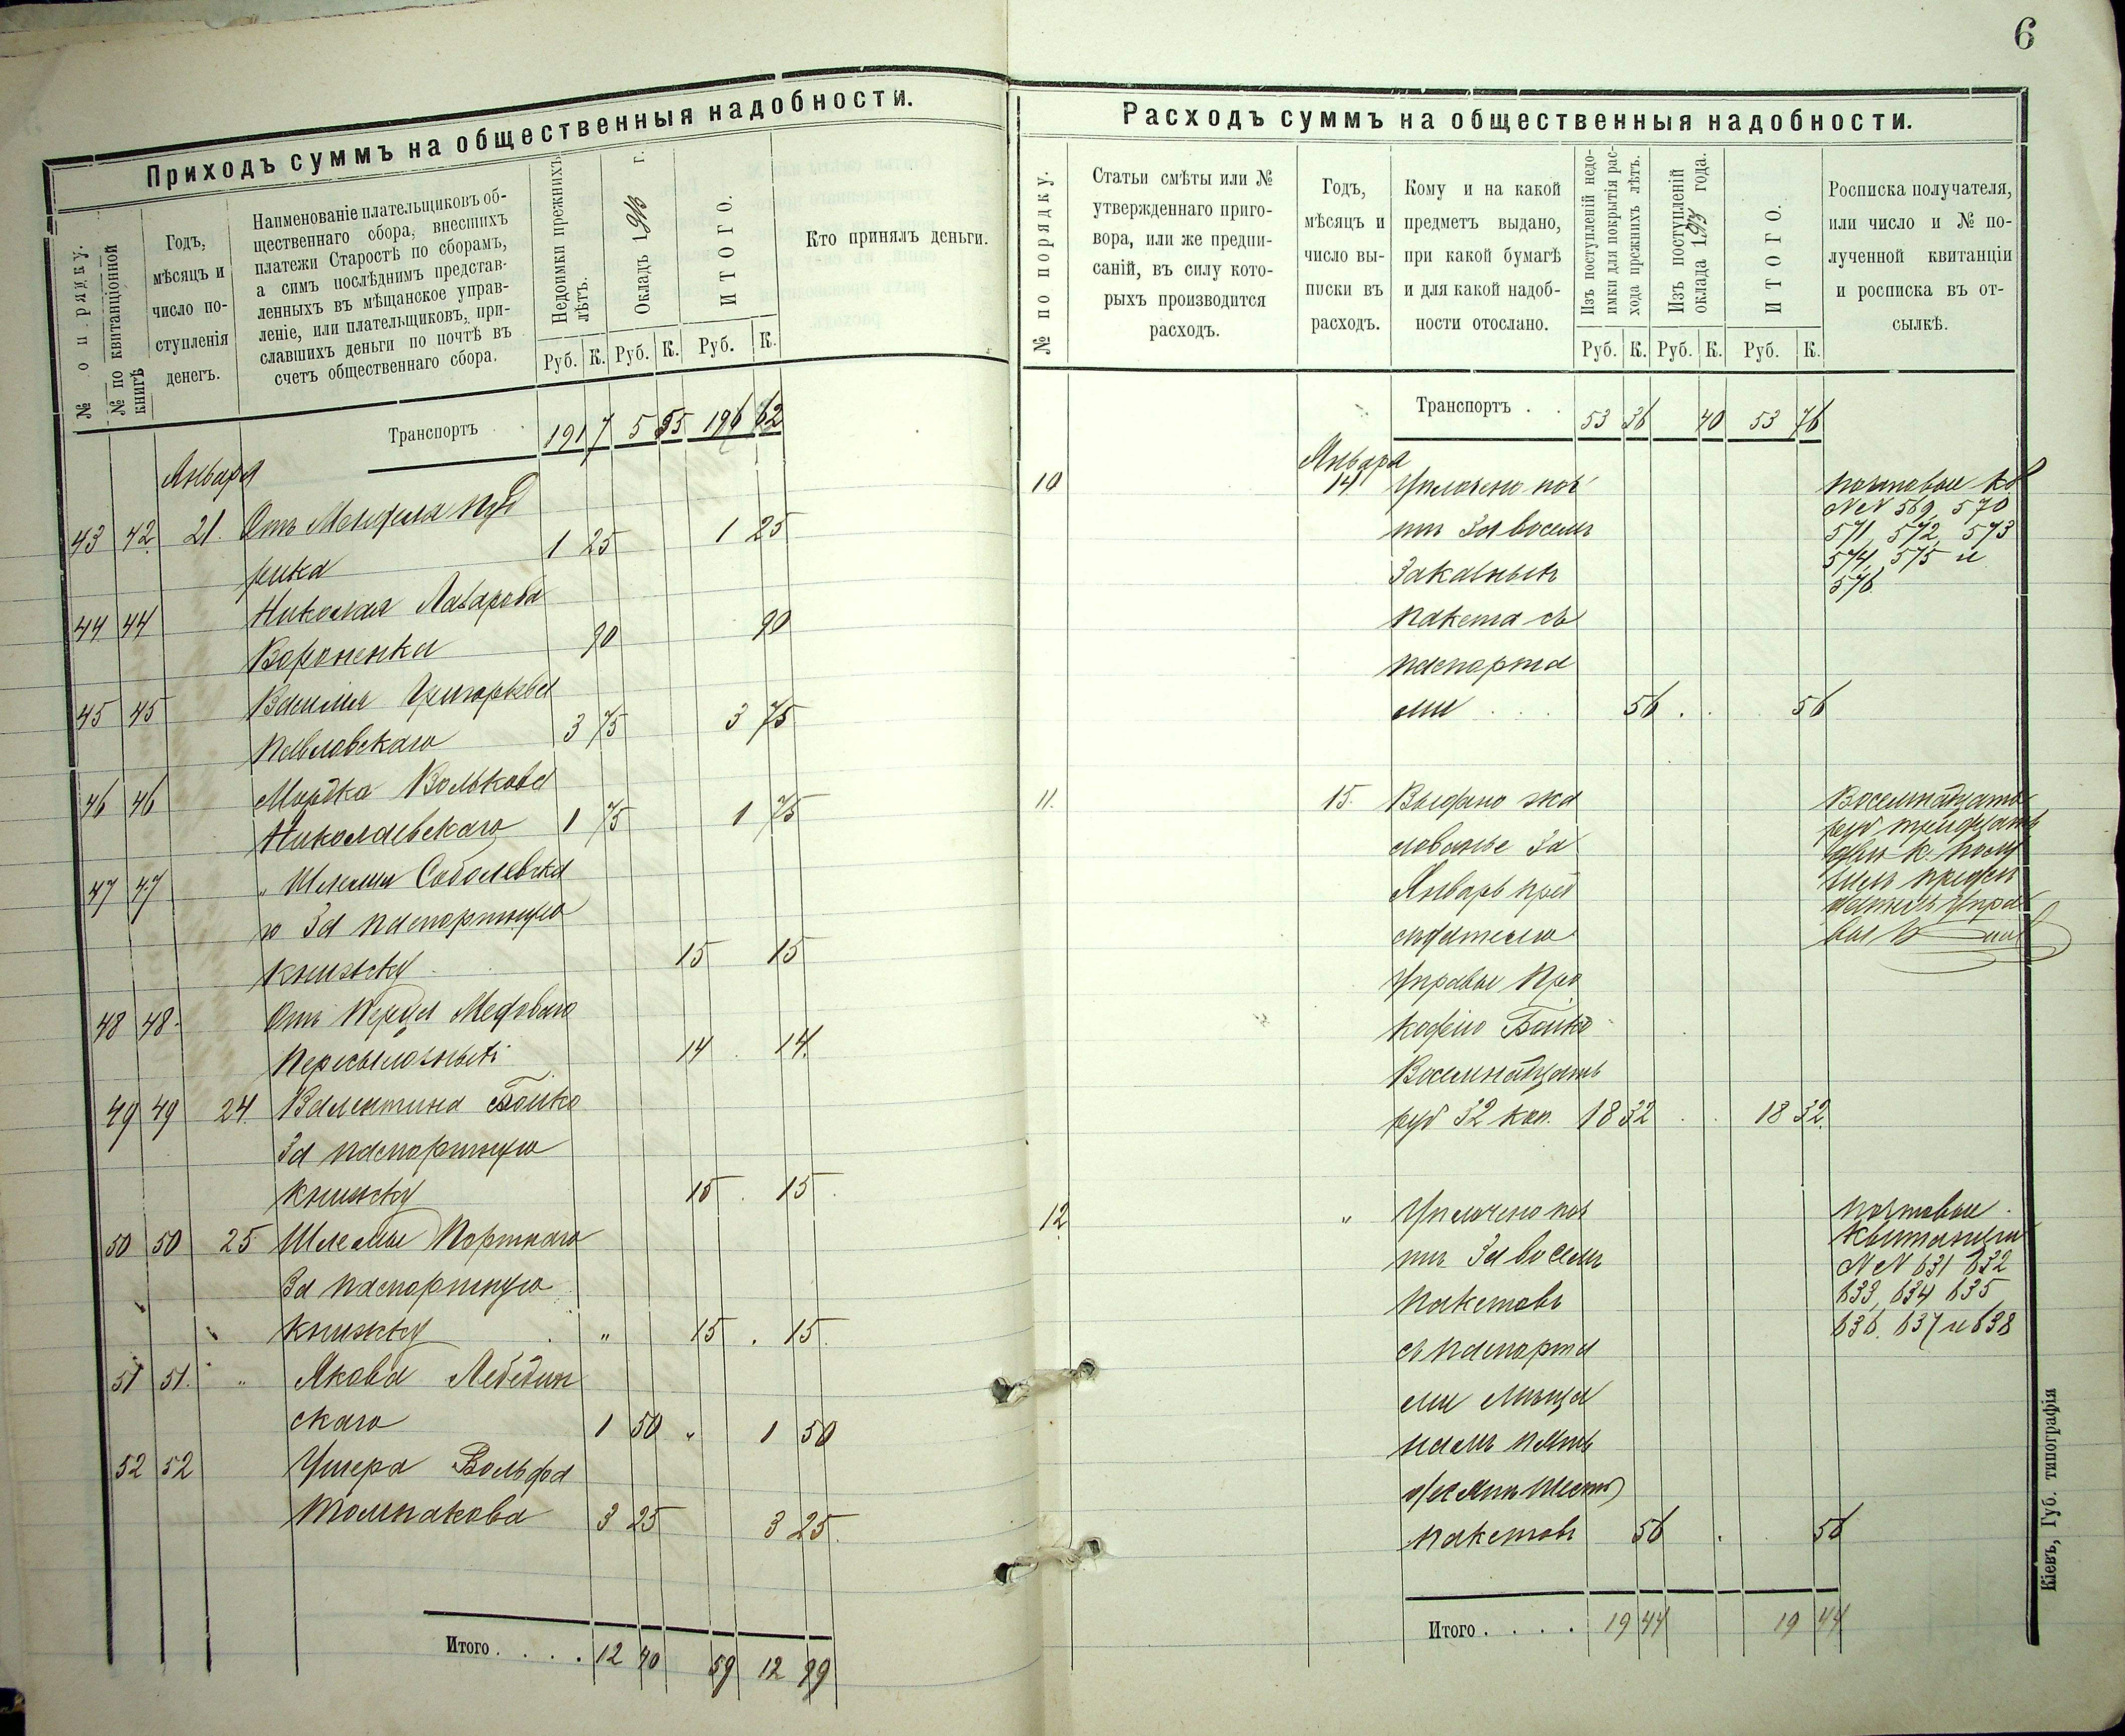 6
Приходъ суммъ на общественныя надобности.
№ по порядку.
№ по квитанціонной
книгѣ
Годъ,
мѣсяцъ и
число по-
ступленія
денегъ.
Наименованіе плательщиковъ об-
щественнаго сбора, внесшихъ
платежи Старостѣ по сборамъ,
а симъ послѣднимъ представ-
ленныхъ въ мѣщанское управ-
леніе, или плательщиковъ, при-
славшихъ деньги по почтѣ въ
счетъ общественнаго сбора.
Недоимки прежнихъ
лѣтъ.
Окладъ 1913 г.
ИТОГО.
Кто принялъ деньги.
Руб. К. Руб. К. Руб. К.
Транспортъ 191 7 5 55 196 62
Января
43 42 21. Отъ Менделя Куд
рика 1 25 1 25
44 44 Николая Лазарова
Вороненка 90 90
45 45 Василія Григорьева
Павловскаго 3 75 3 75
46 46 Мордка Волькова
Николаевскаго 1 75 1 75
47 47 „ Шлемы Соболевска
го За паспортную
книжку 15 15
48 48. Отъ Медоваго
пересылочныхъ 14 14.
49 49 24. Валентина Бойко
За паспортную
книжку 15 15
50 50 25 Шлемы Портнаго
За паспортную
книжку „ 15 15.
51 51. „ Якова Лебедин
скаго 1 50 „ 1 50
52 52 Ушера Вольфа
Толмакова 3 25 3 25.
Итого 12 40 59 12 99
Расходъ суммъ на общественныя надобности.
№ по порядку.
Статьи смѣты или №
утвержденнаго приго-
вора, или же предпи-
саній, въ силу кото-
рыхъ производится
расходъ.
Годъ,
мѣсяцъ и
число вы-
писки въ
расходъ.
Кому и на какой
предметъ выдано,
при какой бумагѣ
и для какой надоб-
ности отослано.
Изъ поступленій недо-
имки для покрытія рас-
хода прежнихъ лѣтъ.
Изъ поступленій
оклада 1913 года.
ИТОГО.
Росписка получателя,
или число и № по-
лученной квитанціи
и росписка въ от-
сылкѣ.
Руб. К. Руб. К. Руб. К.
Транспортъ 53 36 40 53 76
Января
10 14 Уплочено поч
тѣ За восемь
Заказныхъ
пакета съ
паспорта
ми 56 56
почтовые кв
NN 569, 570
571, 572, 573
574, 575 и
576.
11. 15. Выдано жа
лованье За
Январь пред
сѣдателю
Управы Про
кофію Бойко
Восемнадцать
руб 32 коп. 18 32 18 32.
Восемнадцать
руб тридцать
два к. полу
чилъ предсѣ
датель Упра
вы
12 „ Уплочено поч
тѣ За восемь
пакетовъ
съ паспорта
ми мѣща
намъ
пакетовъ 56 56
почтовые
Квитанціи
NN 631 632
633, 634 635
636. 637 и 638
Итого 19 44 19 44
Кіевъ, Губ. типографія